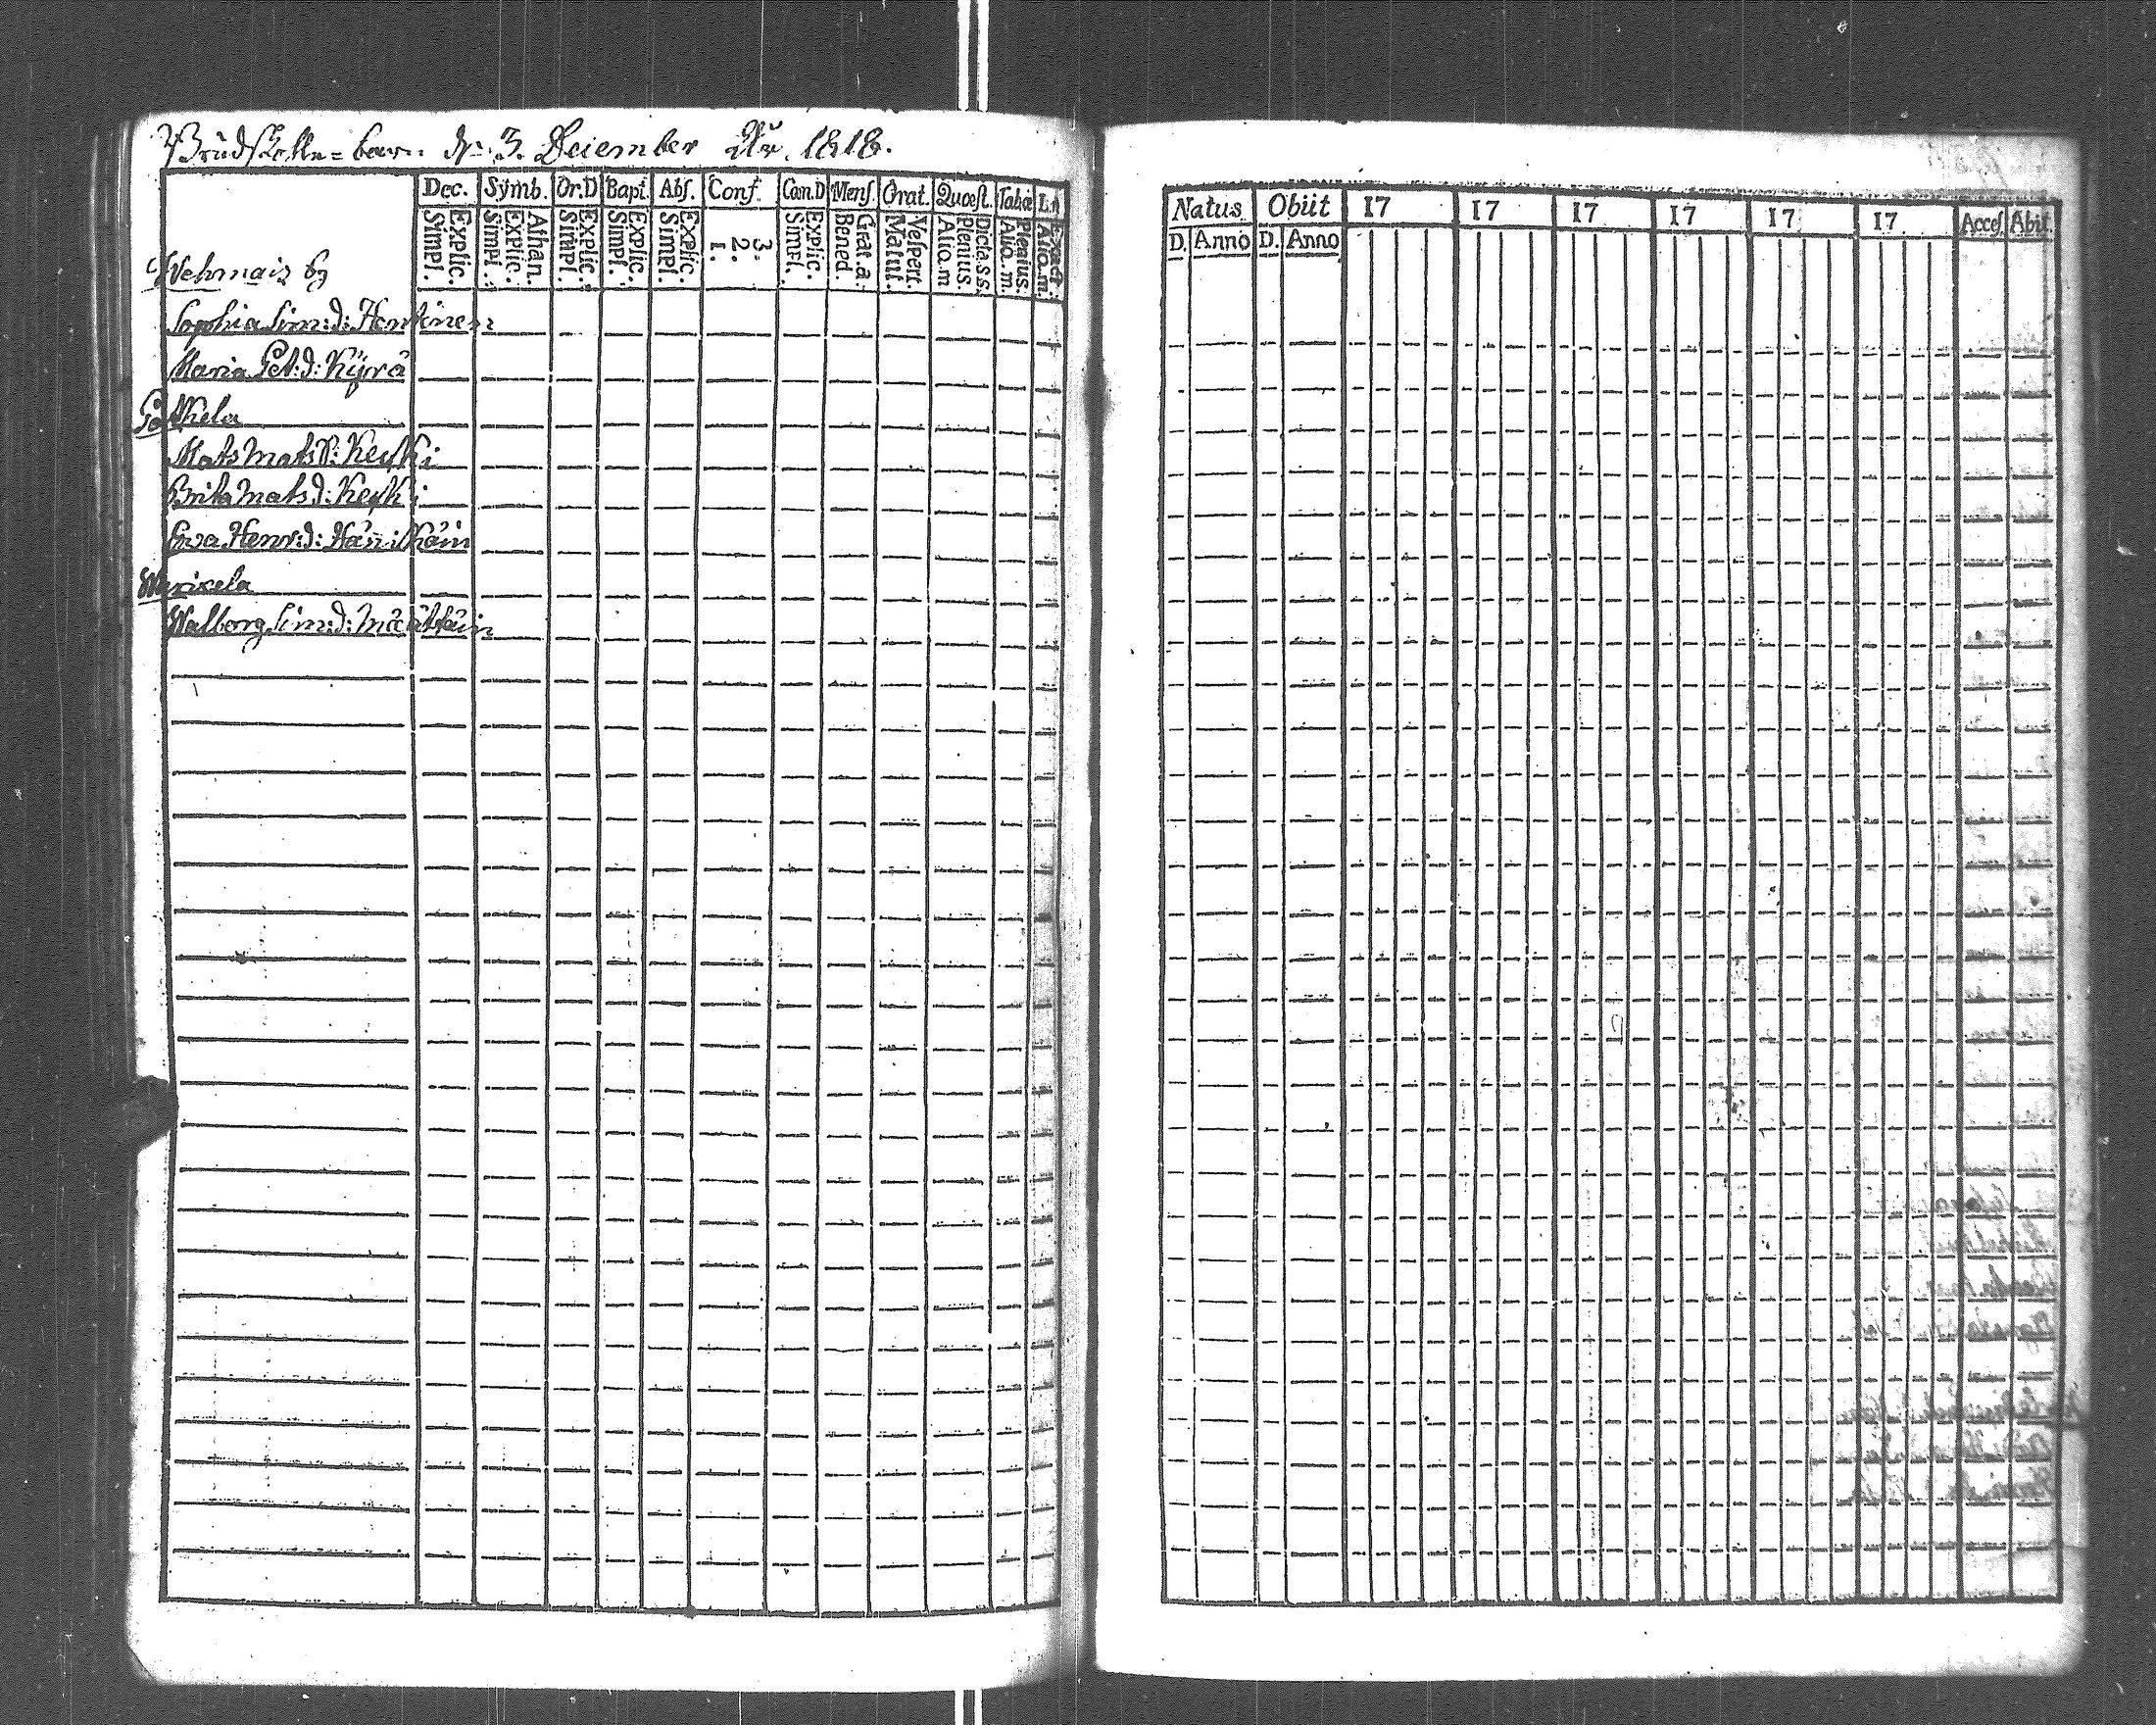 Brudskette=barn d: 3. December År 1818.
Dec. Symb. Or.D Bapt. Abs. Conf. Cœn.D Mens. Orat. Quœst. Tabœ
Explic. Simpl. Athan. Explic. Simpl. Explic. Simpl. Explic. Simpl. Explic. Simpl. 3. 2. 1. Explic. Simpl. Grat. a. Bened. Vespert. Matut. Dicta.s.s. Plenius. Aliq.m Plenius. Aliq.m. Exact. Aliq.m.
Wehmais by
Sophia Sim:d: Honkinen
Maria Pet:d: Kyrö
Pätkelä
Mats Mats S: Keski
Brita Mats d: Keski
Ewa Henr:d:
Warixela
Walborg Sim:d:
Natus Obiit 17 17 17 17 17 17 Acces. Abit.
D. Anno D. Anno